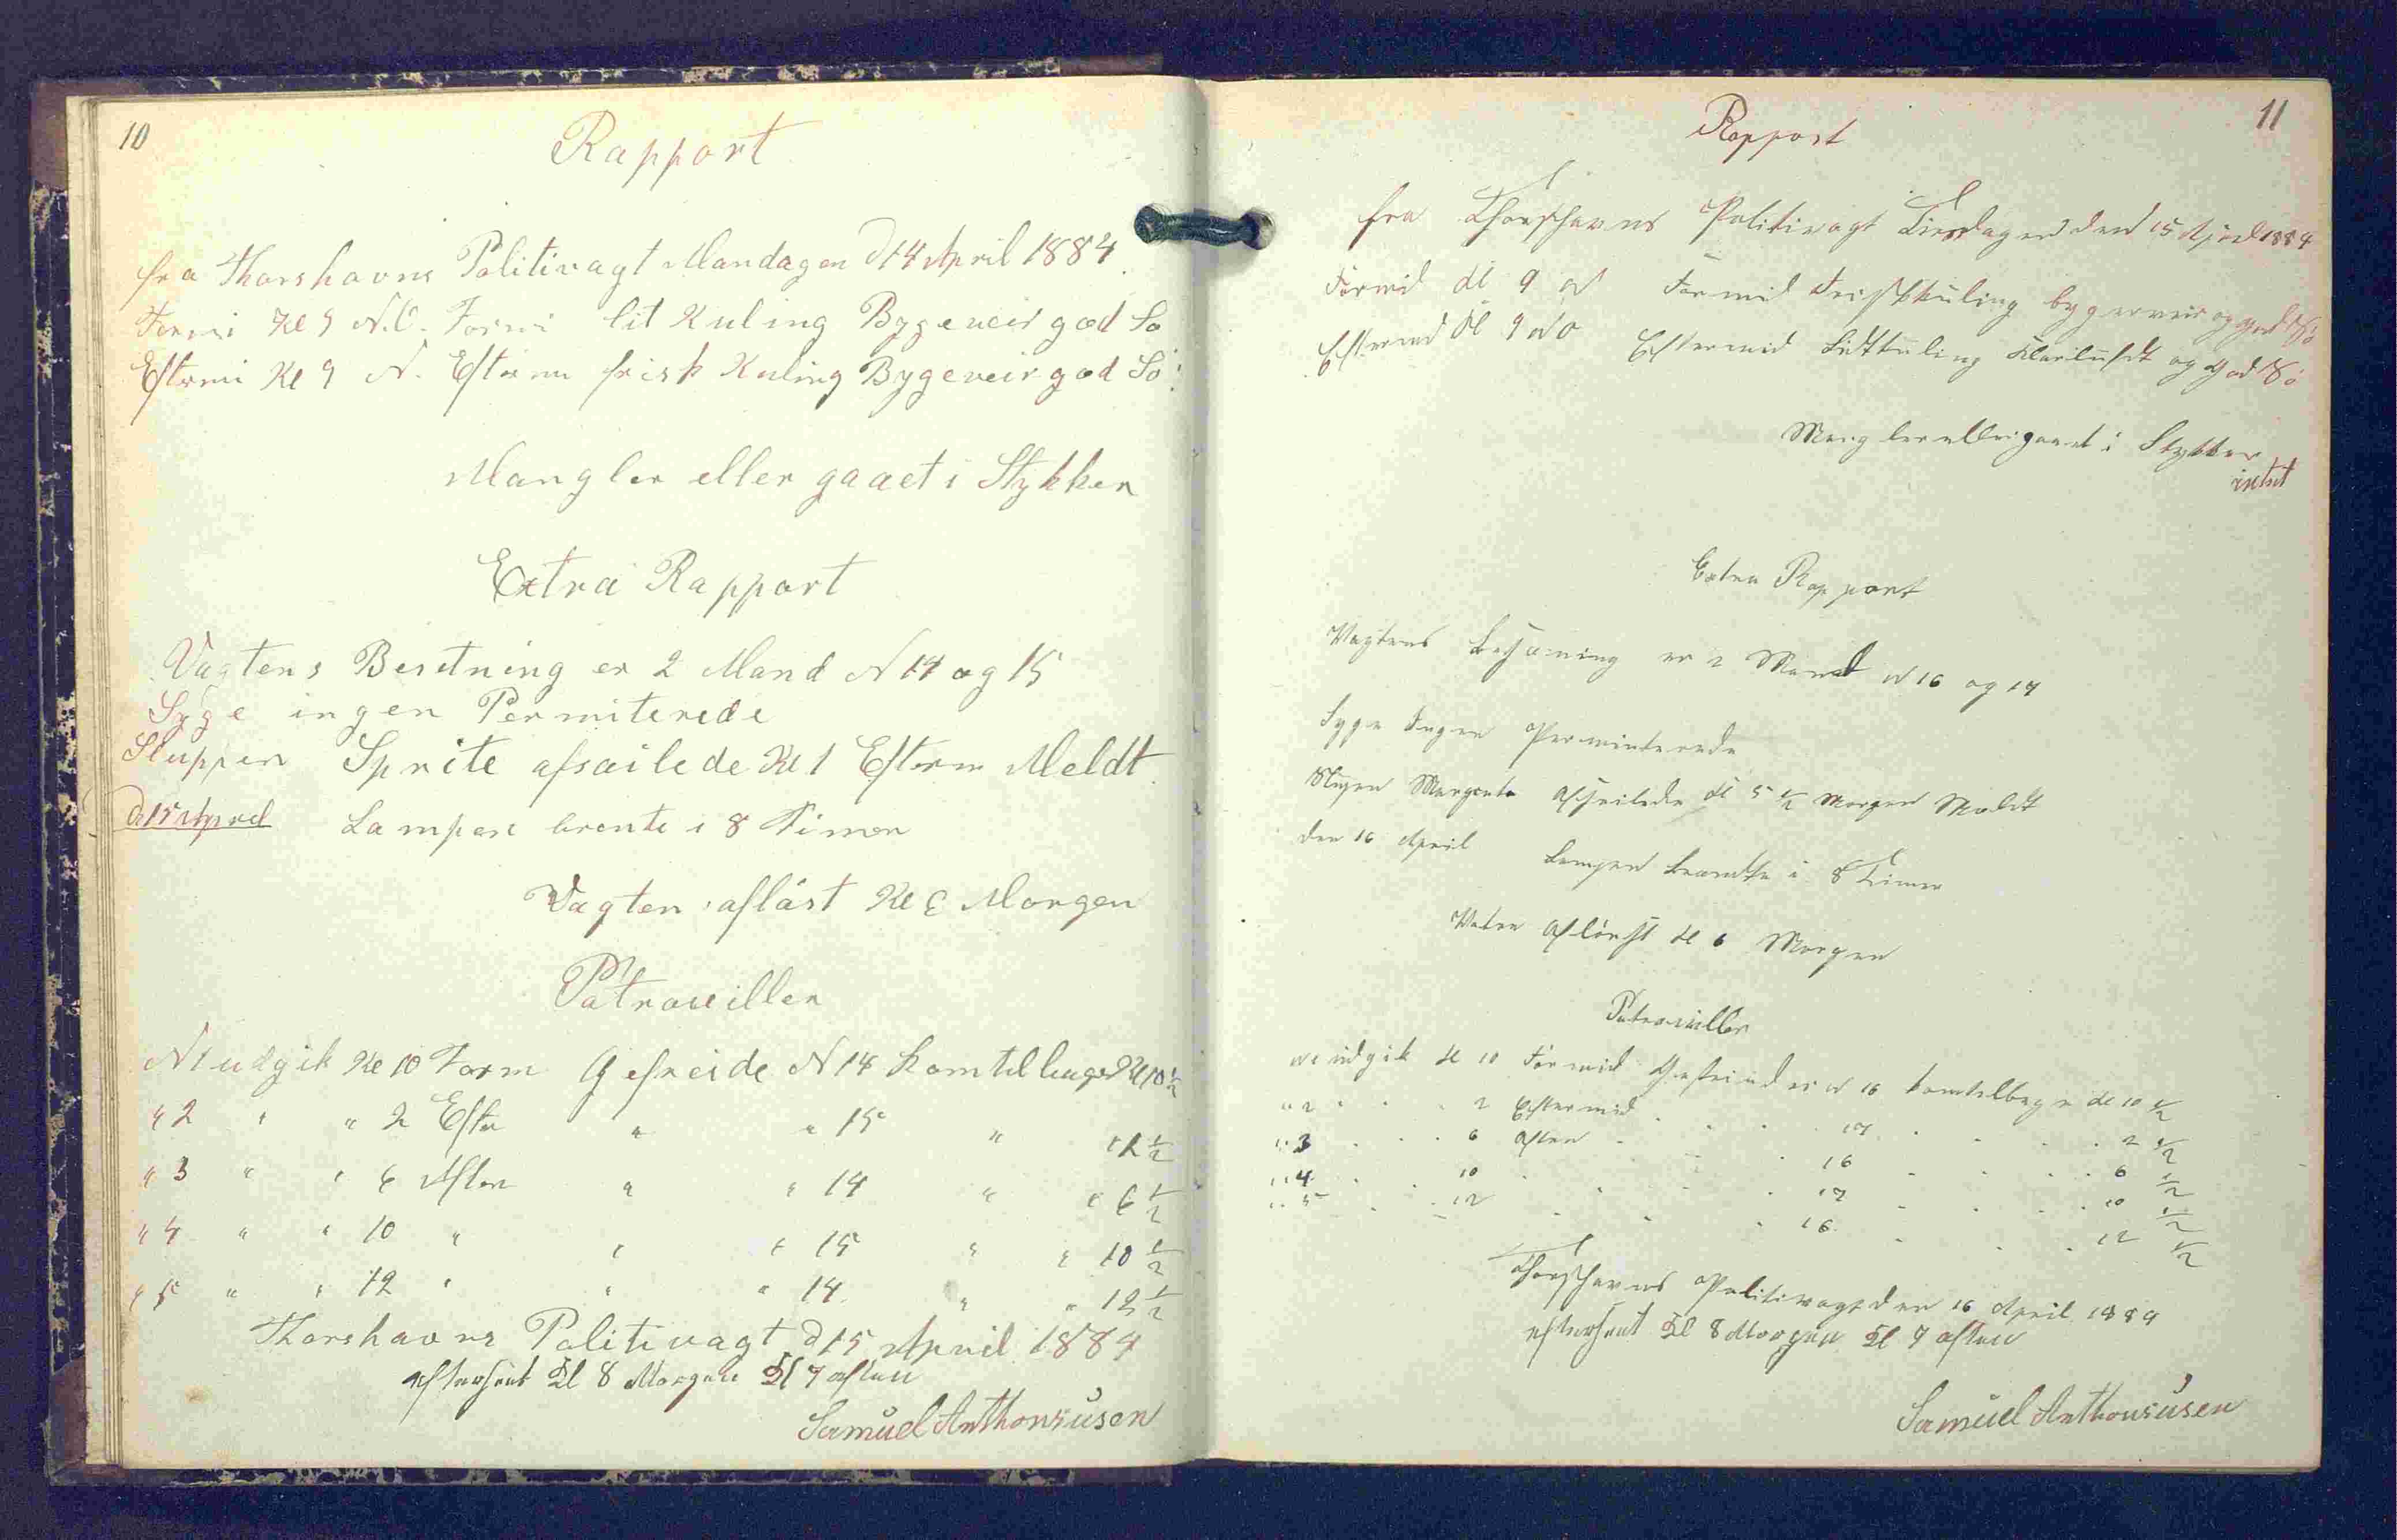 10
Rapport
fra Thorshavns Politivagt Mandagen d 14 April 1884
Formi Kl 9 N.O. Formi lit Kuling Bygeveir god Sø
Eftermi Kl 9 N. Efterm frisk Kuling Bygeveir god Sø
Mangler eller gaaet i Stykker
Extra Rapport
Vagtens Besetning er 2 Mand N 14 og 15
Syge ingen Permiterede
Sluppen Sprite afseilede Kl 1 Efterm Meldt
d 15 April Lampen brente i 8 Timer
Vagten afløst Kl 6 Morgen
Patrouiller
N 1 udgik Kl 10 Form Gefreide N 14 kom tilbage Kl 10 1/2
" 2 " " 2 Efter " " 15 " " 2 1/2
" 3 " " 6 Aften " " 14 " " 6 1/2
" 4 " " 10 " " " 15 " " 10 1/2
" 5 " " 12 " " " 14 " " 12 1/2
Thorshavns Politivagt d 15 April 1884
efterseet Kl 8 Morgen Kl 7 aften
Samuel Anthoniusen
11
Rapport
fra Thorshavns Politivagt Tirsdagen den 15 April 1884
Formid Kl 9 N Formid Friskkuling bygerveir og god Sø
Eftermid Kl 9 N O Eftermid Lidtkuling Klarluft og god Sø
Mangler eller gaaet i Stykker
intet
Extra Rapport
Vagtens Besætning er 2 Mand N 16 og 17
Syge Ingen Perminterede
Slupen Margreta Afseilede Kl 5 1/2 Morgen Meldt
den 16 April Lampen brændte i 8 Timer
Vaten Afløst Kl 6 Morgen
Patrouiller
N 1 udgik Kl 10 Formid Gefreider N 16 kom tilbage Kl 10 1/2
" 2 " " 2 Eftermid " " 17 " " 2 1/2
" 3 " " 6 Aften " " 16 " " 6 1/2
" 4 " " 10 " " " 17 " " 10 1/2
" 5 " " 12 " " " 16 " " 12 1/2
Thorshavns Politivagt den 16 April 1884
efterseet Kl 8 Morgen Kl 7 aften
Samuel Anthoniusen